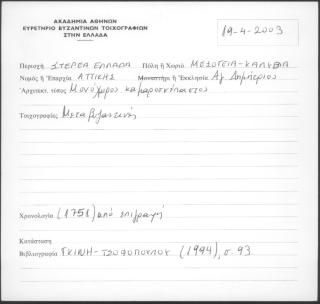 ΑΚΑΔΗΜΙΑ ΑΘΗΝΩΝ
ΕΥΡΕΤΗΡΙΟ ΒΥΖΑΝΤΙΝΩΝ ΤΟΙΧΟΓΡΑΦΙΩΝ
ΣΤΗΝ ΕΛΛΑΔΑ
19-4-2003
Περιοχή ΣΤΕΡΕΑ ΕΛΛΑΔΑ Πόλη ή Χωριό ΜΕΣΟΓΕΙΑ-ΚΑΛΥΒΙΑ
Νομός ή Ἐπαρχία ΑΤΤΙΚΗΣ Μοναστήρι ή Ἐκκλησία Αγ. Δημήτριος
Ἀρχιτεκτ. τύπος Μονόχωρος καμαροσκέπαστος
Τοιχογραφίες Μεταβυζαντινές
Χρονολογία (1751) από επιγραφή
Κατάσταση
Βιβλιογραφία ΓΚΙΝΗ-ΤΣΟΦΟΠΟΥΛΟΥ (1994), σ. 93